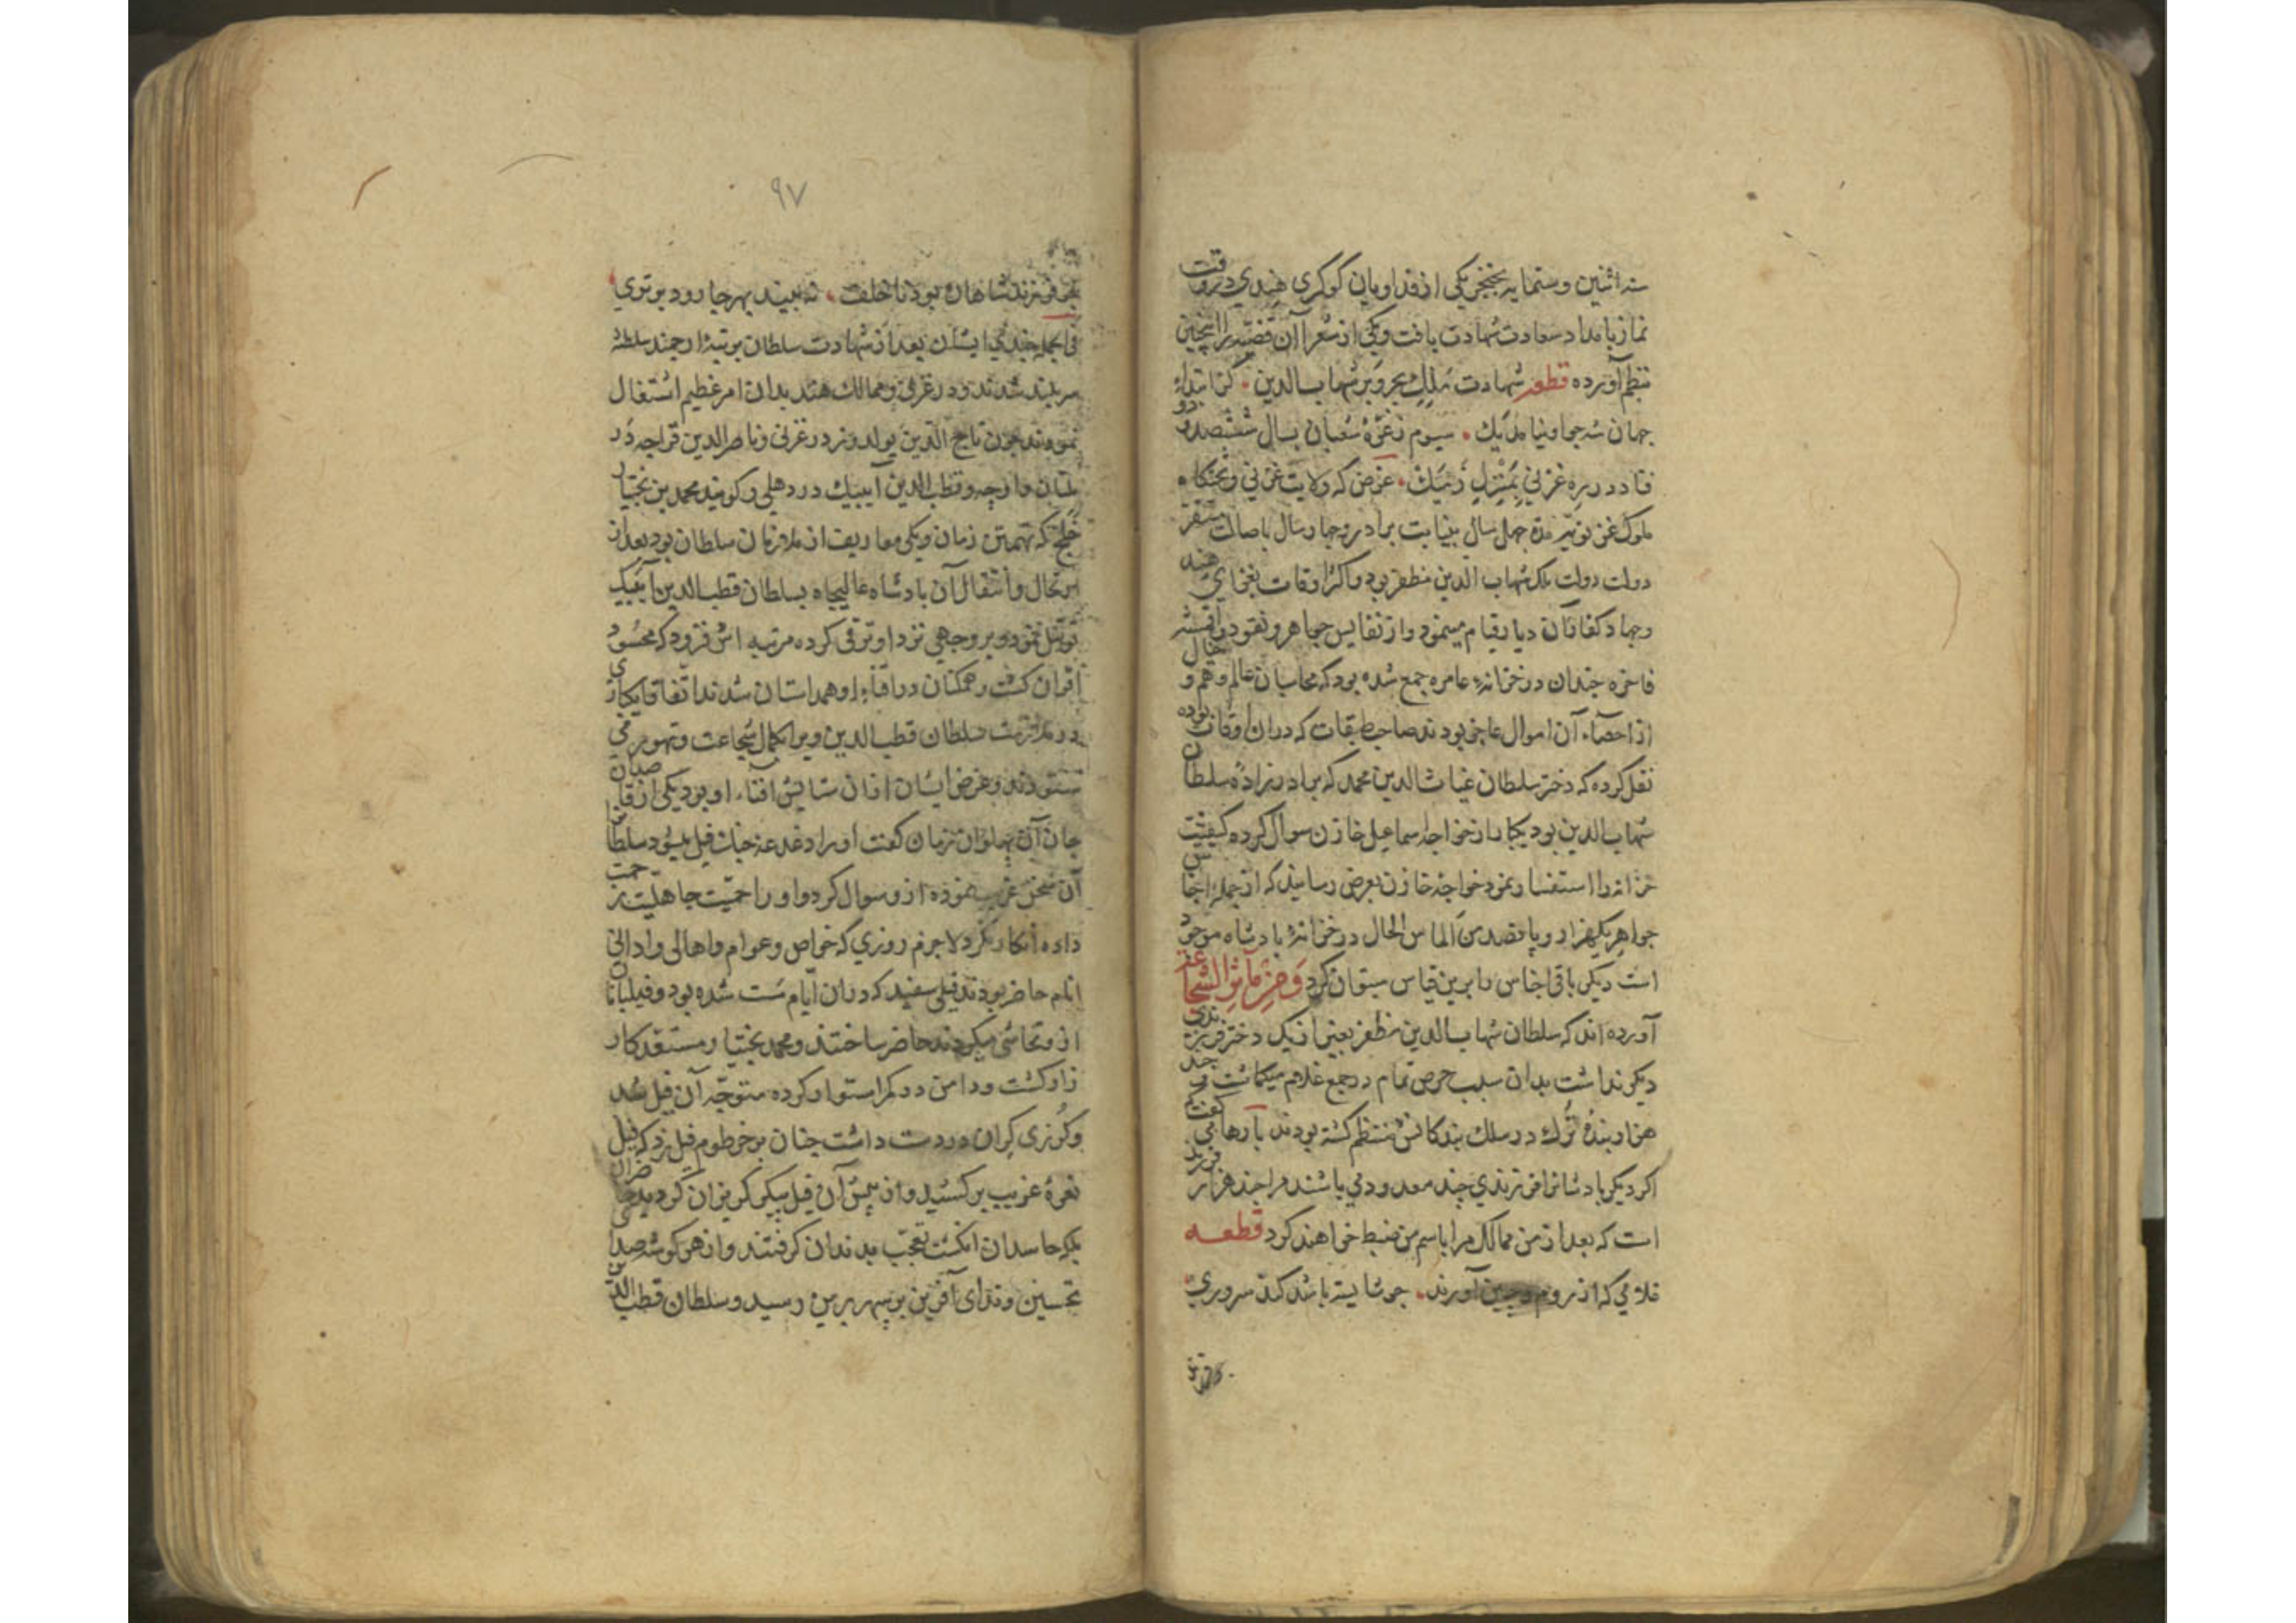 سنه اثنین و ستمایه بخنجر یکی از فداویان کوکری هندی در وقت
نماز بامداد سعادت شهادت یافت و یکی از شعرا آن قضیه را اینچنین
بنظم آورده قطعه شهادت ملک بحر و بر شهاب الدین کز ابتداء
جهان شه چو او نیامد یک سیوم ز غرّهٔ شعبان بسال ششصد و دو
فتاد در ره غزنی بمنزل دمیک غرض که ولایت غزنی و تختکاه
ملوک غزنویه مدة چهل سال بنیابت برادر و چهار سال باصالت مستقر
دولت دولت ملک شهاب الدین مظفر بود و اکثر اوقات بغزای هند
و جهاد کفار آن دیار قیام مینمود و از نفایس جواهر و نقود و اقمشه
فاخره چندان در خزانهٔ عامره جمع شده بود که محاسبان عالم وهم و خیال
از احصاء آن اموال عاجز بودند صاحب طبقات که دران اوقات بوده
نقل کرده که دختر سلطان غیاث الدین محمد که برادرزادهٔ سلطان
شهاب الدین بود یکبار از خواجه اسماعیل خازن سوال کرده کیفیت
خزانه را استفسار نمود خواجه خازن بعرض رسانید که از جمله اجناس
جواهر یکهزار و پانصد من الماس الحال در خزانهٔ بادشاه موجود
است دیگر باقی اجناس را برین قیاس میتوان کرد و من مآثر الشجاعة
آورده اند که سلطان شهاب الدین مظفر بغیر از یک دختر فرزندی
دیگر نداشت بدان سبب حرص تمام در جمع غلام میکماشت و چند
هزار بندهٔ ترک در سلک بندکانش منتظم کشته بودند بارها می کفت که
اکر دیکر بادشاهانرا فرزندی چند معدودی باشند مرا چند هزار فرزند
است که بعد از من ممالک مرا باسم من ضبط خواهند کرد قطعه
غلامی که از روم و چین آورند چو شایسته باشد کند سروری
۹۷
فرزند شاهان بود ناخلف نه بیند بهر جا رود برتری
فی الجمله چندی ایشان بعد از شهادت سلطان برتبهٔ ارجمند سلطنه
سربلند شدند و در غزنی و ممالک هند بدان امر عظیم اشتغال
نمودند چون تاج الدین یولدوز در غزنی و ناصر الدین قراجه در
ملتان و اوچه و قطب الدین آیبیک در دهلی و کویند محمد بن بختیار
خلج که تهمتن زمان و یکی معاریف از ملازمان سلطان بود بعد از
ارتحال و انتقال آن بادشاه عالیجاه بسلطان قطب الدین آیبیک
توسّل نمود و بر وجهی نزد او ترقی کرده مرتبه اش فزود که محسود
اقران کشت و همکنان در افناء او همداستان شدند اتفاقا یکبار
در ملازمت سلطان قطب الدین ویرا بکمال شجاعت و تهور می
ستودند و غرض ایشان ازان ستایش افناء او بود یکی از قاصدان
جان آن پهلوان زمان کفت او را دغدغه جنک فیل میشود سلطان
آن سخن غریب نموده ازو سوال کرد و او را حمیّت جاهلیّت رخصت
داده انکار نکرد لاجرم روزی که خواص و عوام و اهالی و ادانی
انام حاضر بودند فیل سفید که دران ایام مست شده بود و فیلبانان
ازو تحاشی میکردند حاضر ساختند و محمد بختیار مستعد کار
زار کشت و دامن در کمر استوار کرده متوجّه آن فیل شد
و کرزی کران در دست داشت چنان بر خرطوم فیل زد که فیل
نعرهٔ غریب برکشید و از پیش آن فیل پیکر کریزان کردید حاضران
بلکه حاسدان انکشت تعجّب بدندان کرفتند و از هر کوشه صدای
تحسین و ندای آفرین بر سپهر برین رسید و سلطان قطب الدین